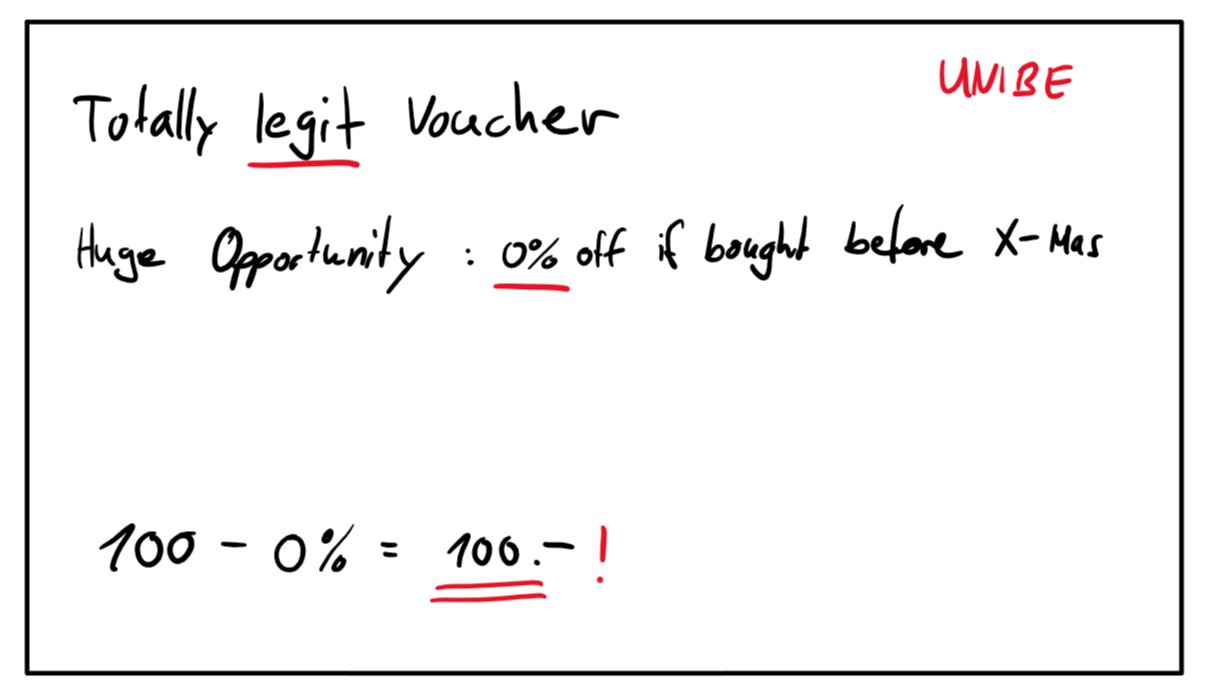 UNIBE
Totally legit Voucher
Huge Opportunity : 0% off if bought before X-Mas
100 - 0% = 100.- !